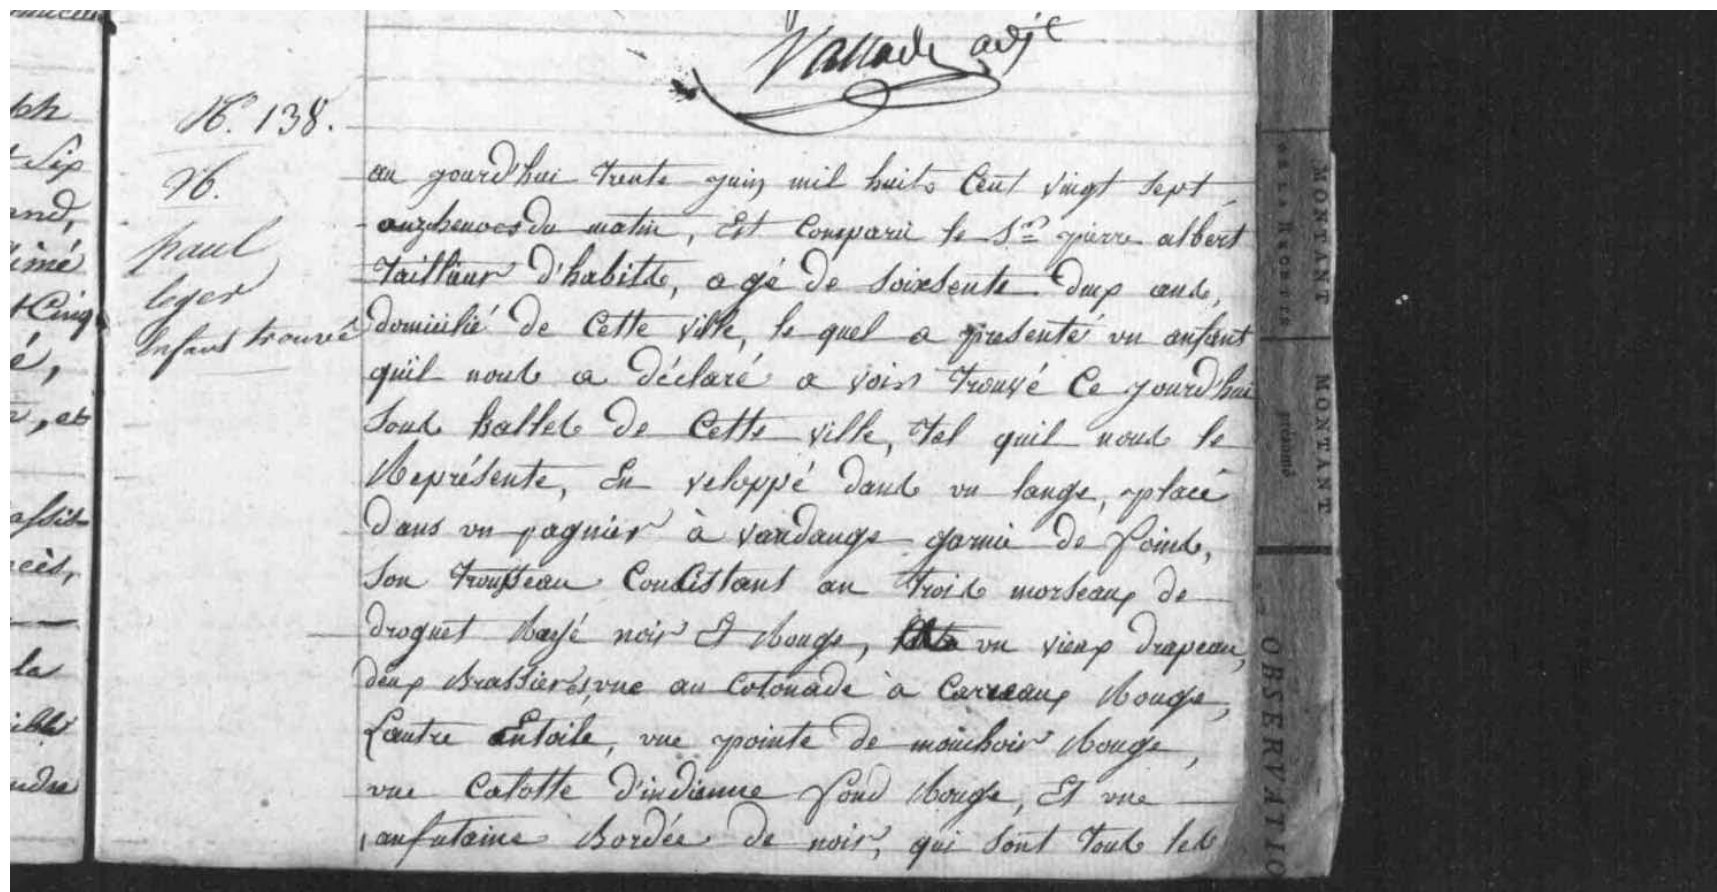 Vallade adjt
N. 138.
N.
paul
leger
Enfant trouvé
au jourd'hui trente juin mil huits Cent vingt sept
onzeheures du matin, Est Comparü le Sr pierre albert
tailleur d'habits, agé de soixsente. deux ans,
domicilié de Cette ville, le quel a presenté un anfant
qu'il nous a déclaré a voir trouvé Ce jourd'hui
sous balles de Cette ville, tel quil nous le
Représente, En veloppé dans un lange, placé
dans un pagnier à vandange garnie de foins,
son trousseau Consistant an trois morseaux de
droguet Rayé noir Et Rouge, un vieux drapeau,
deux Brassieres, une au Cotonade à Carreaux Rouge,
Lautre Entoile, une pointe de mouchoir Rouge,
une Calotte d'indienne fond Rouge, Et une
anfutaine Bordée de noir, qui sont tous les
ph
t six
and,
timé
t Cinq
é,
, et
assis
la
MONTANT
MONTANT
OBSERVATIO